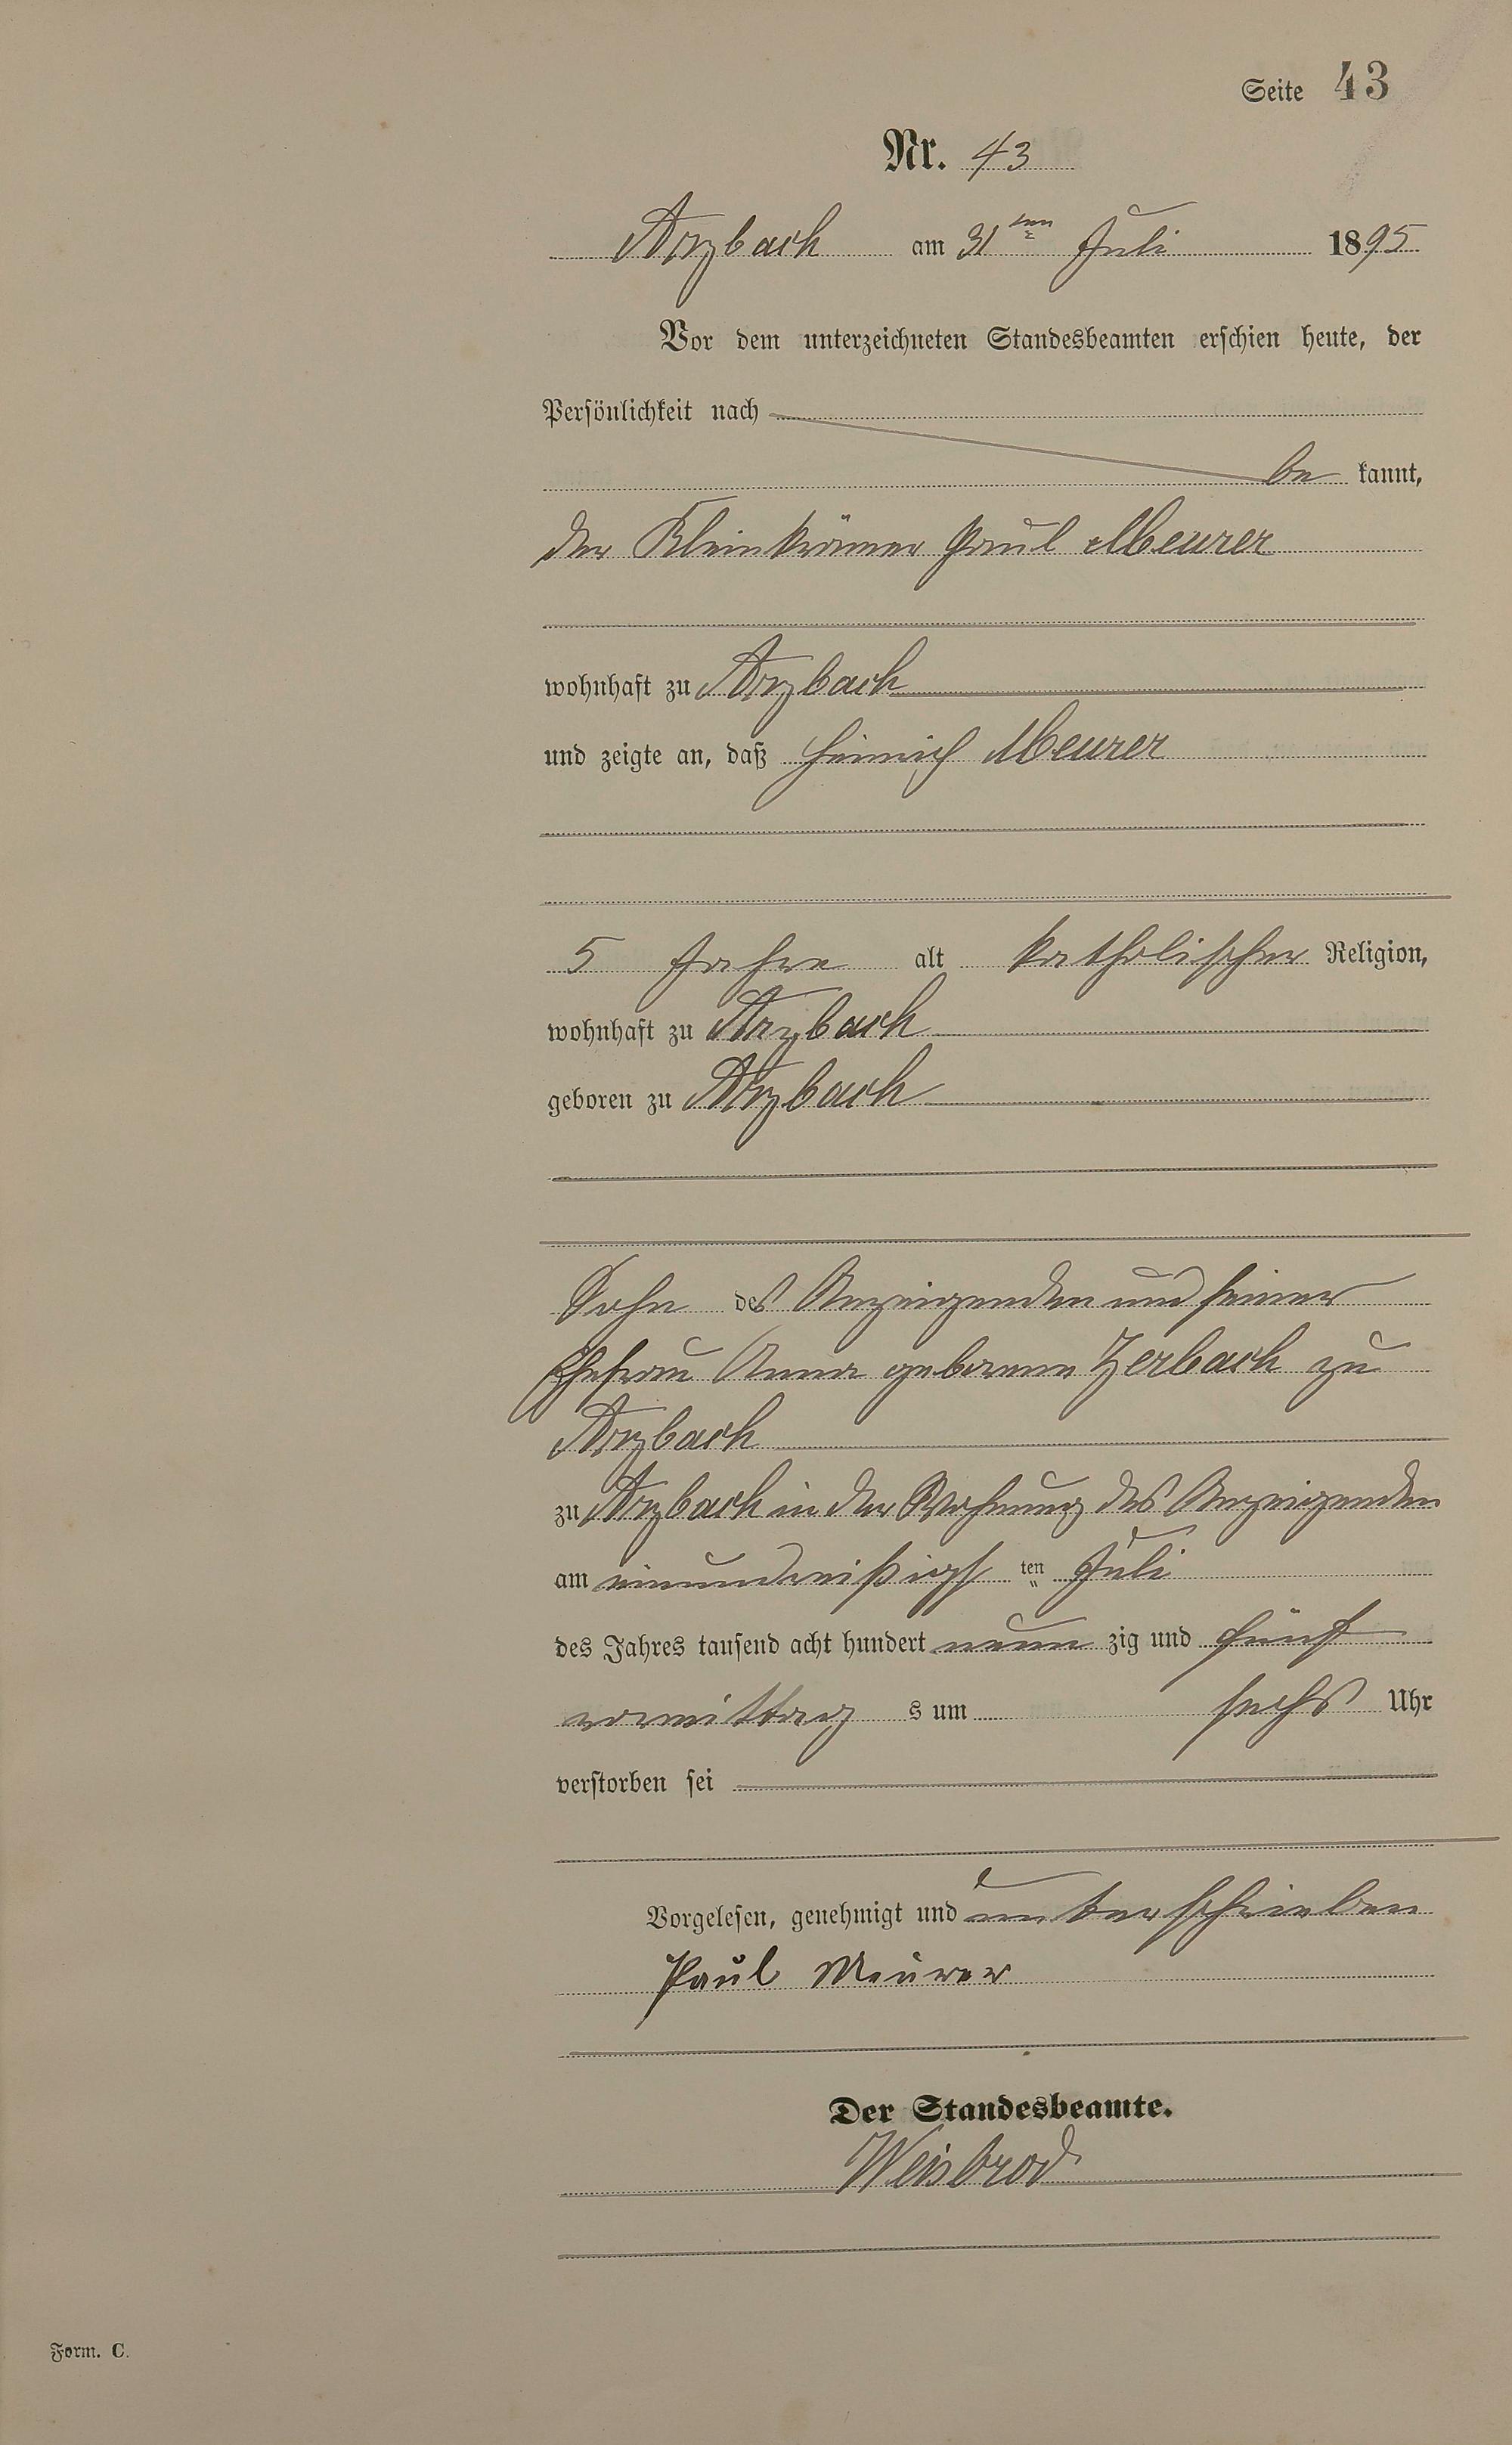 Seite 43
Nr. 43
Arzbach am 31ten Juli 1895
Vor dem unterzeichneten Standesbeamten erschien heute, der
Persönlichkeit nach
be kannt,
der Kleinkrämer Paul Meurer
wohnhaft zu Arzbach
und zeigte an, daß Heinrich Meurer
5 Jahre alt katholischer Religion,
wohnhaft zu Arzbach
geboren zu Arzbach
Sohn des Anzeigenden und seiner
Ehefrau Anna geborene Zerbach zu
Arzbach
zu Arzbach in der Wohnung des Anzeigenden
am einunddreißigsten Juli
des Jahres tausend acht hundert neun zig und fünf
vormittag s um sechs Uhr
verstorben sei
Vorgelesen, genehmigt und unterschrieben
Paul Meurer
Der Standesbeamte.
Weisbrod
Form. C.